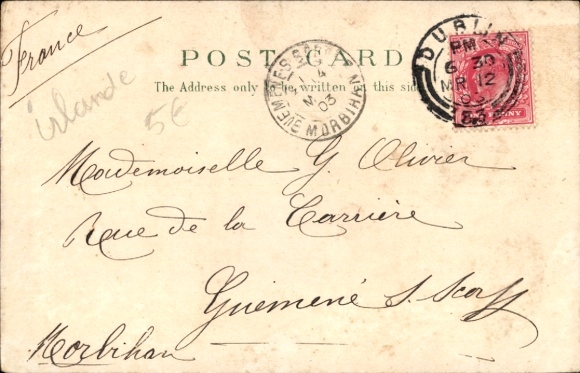 France
POST CARD
The Address only to be written on this side
DUBLIN
PM
6 30
MR 12
03
83
GUEMENÉ S SCORFF
4
03
MORBIHAN
Irlande
5€
Mademoiselle G. Olivier
Rue de la Carrière
Guémené s. Scorff
Morbihan